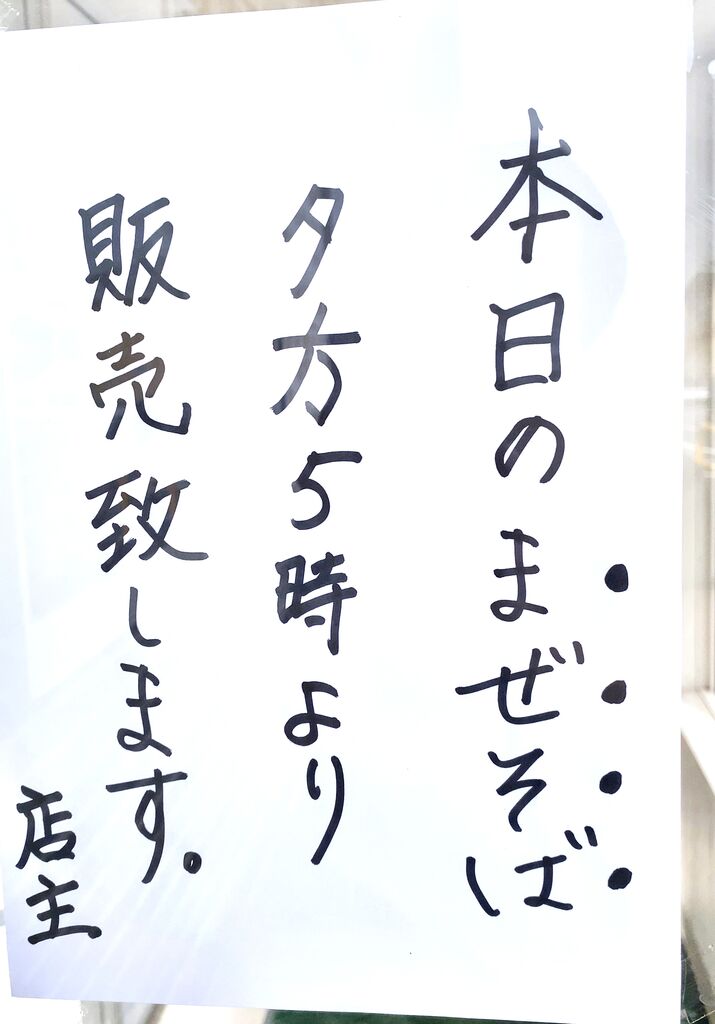 本日のまぜそば
夕方5時より
販売致します。
店主